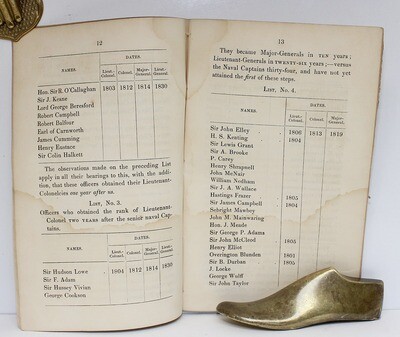 12
NAMES.
DATES.
Lieut.-Colonel.
Colonel.
Major-General.
Lieut.-General.
Hon. Sir R. O'Callaghan 1803 1812 1814 1830
Sir J. Keane
Lord George Beresford
Robert Campbell
Robert Balfour
Earl of Carnworth
James Cumming
Henry Eustace
Sir Colin Halkett
The observations made on the preceding List
apply in all their bearings to this, with the addi-
tion, that these officers obtained their Lieutenant-
Colonelcies one year after us.
LIST, No. 3.
Officers who obtained the rank of Lieutenant-
Colonel TWO YEARS after the senior naval Cap-
tains.
NAMES.
DATES.
Lieut.-Colonel.
Colonel.
Major-General.
Lieut.-General.
Sir Hudson Lowe 1804 1812 1814 1830
Sir F. Adam
Sir Hussey Vivian
George Cookson
13
They became Major-Generals in TEN years;
Lieutenant-Generals in TWENTY-SIX years;—versus
the Naval Captains thirty-four, and have not yet
attained the first of these steps.
LIST, No. 4.
NAMES.
DATES.
Lieut.-Colonel.
Colonel.
Major-General.
Sir John Elley 1806 1813 1819
H. S. Keating 1804
Sir Lewis Grant
Sir A. Brooke
P. Carey
Henry Shrapnell
John McNair
William Nedham
Sir J. A. Wallace
Hastings Fraser 1805
Sir James Campbell 1804
Sebright Mawbey
John M. Mainwaring
Hon. J. Meade
Sir George P. Adams
Sir John McCleod 1805
Henry Elliot
Overington Blunden 1801
Sir B. Durban 1805
J. Locke
George Wulff
Sir John Taylor